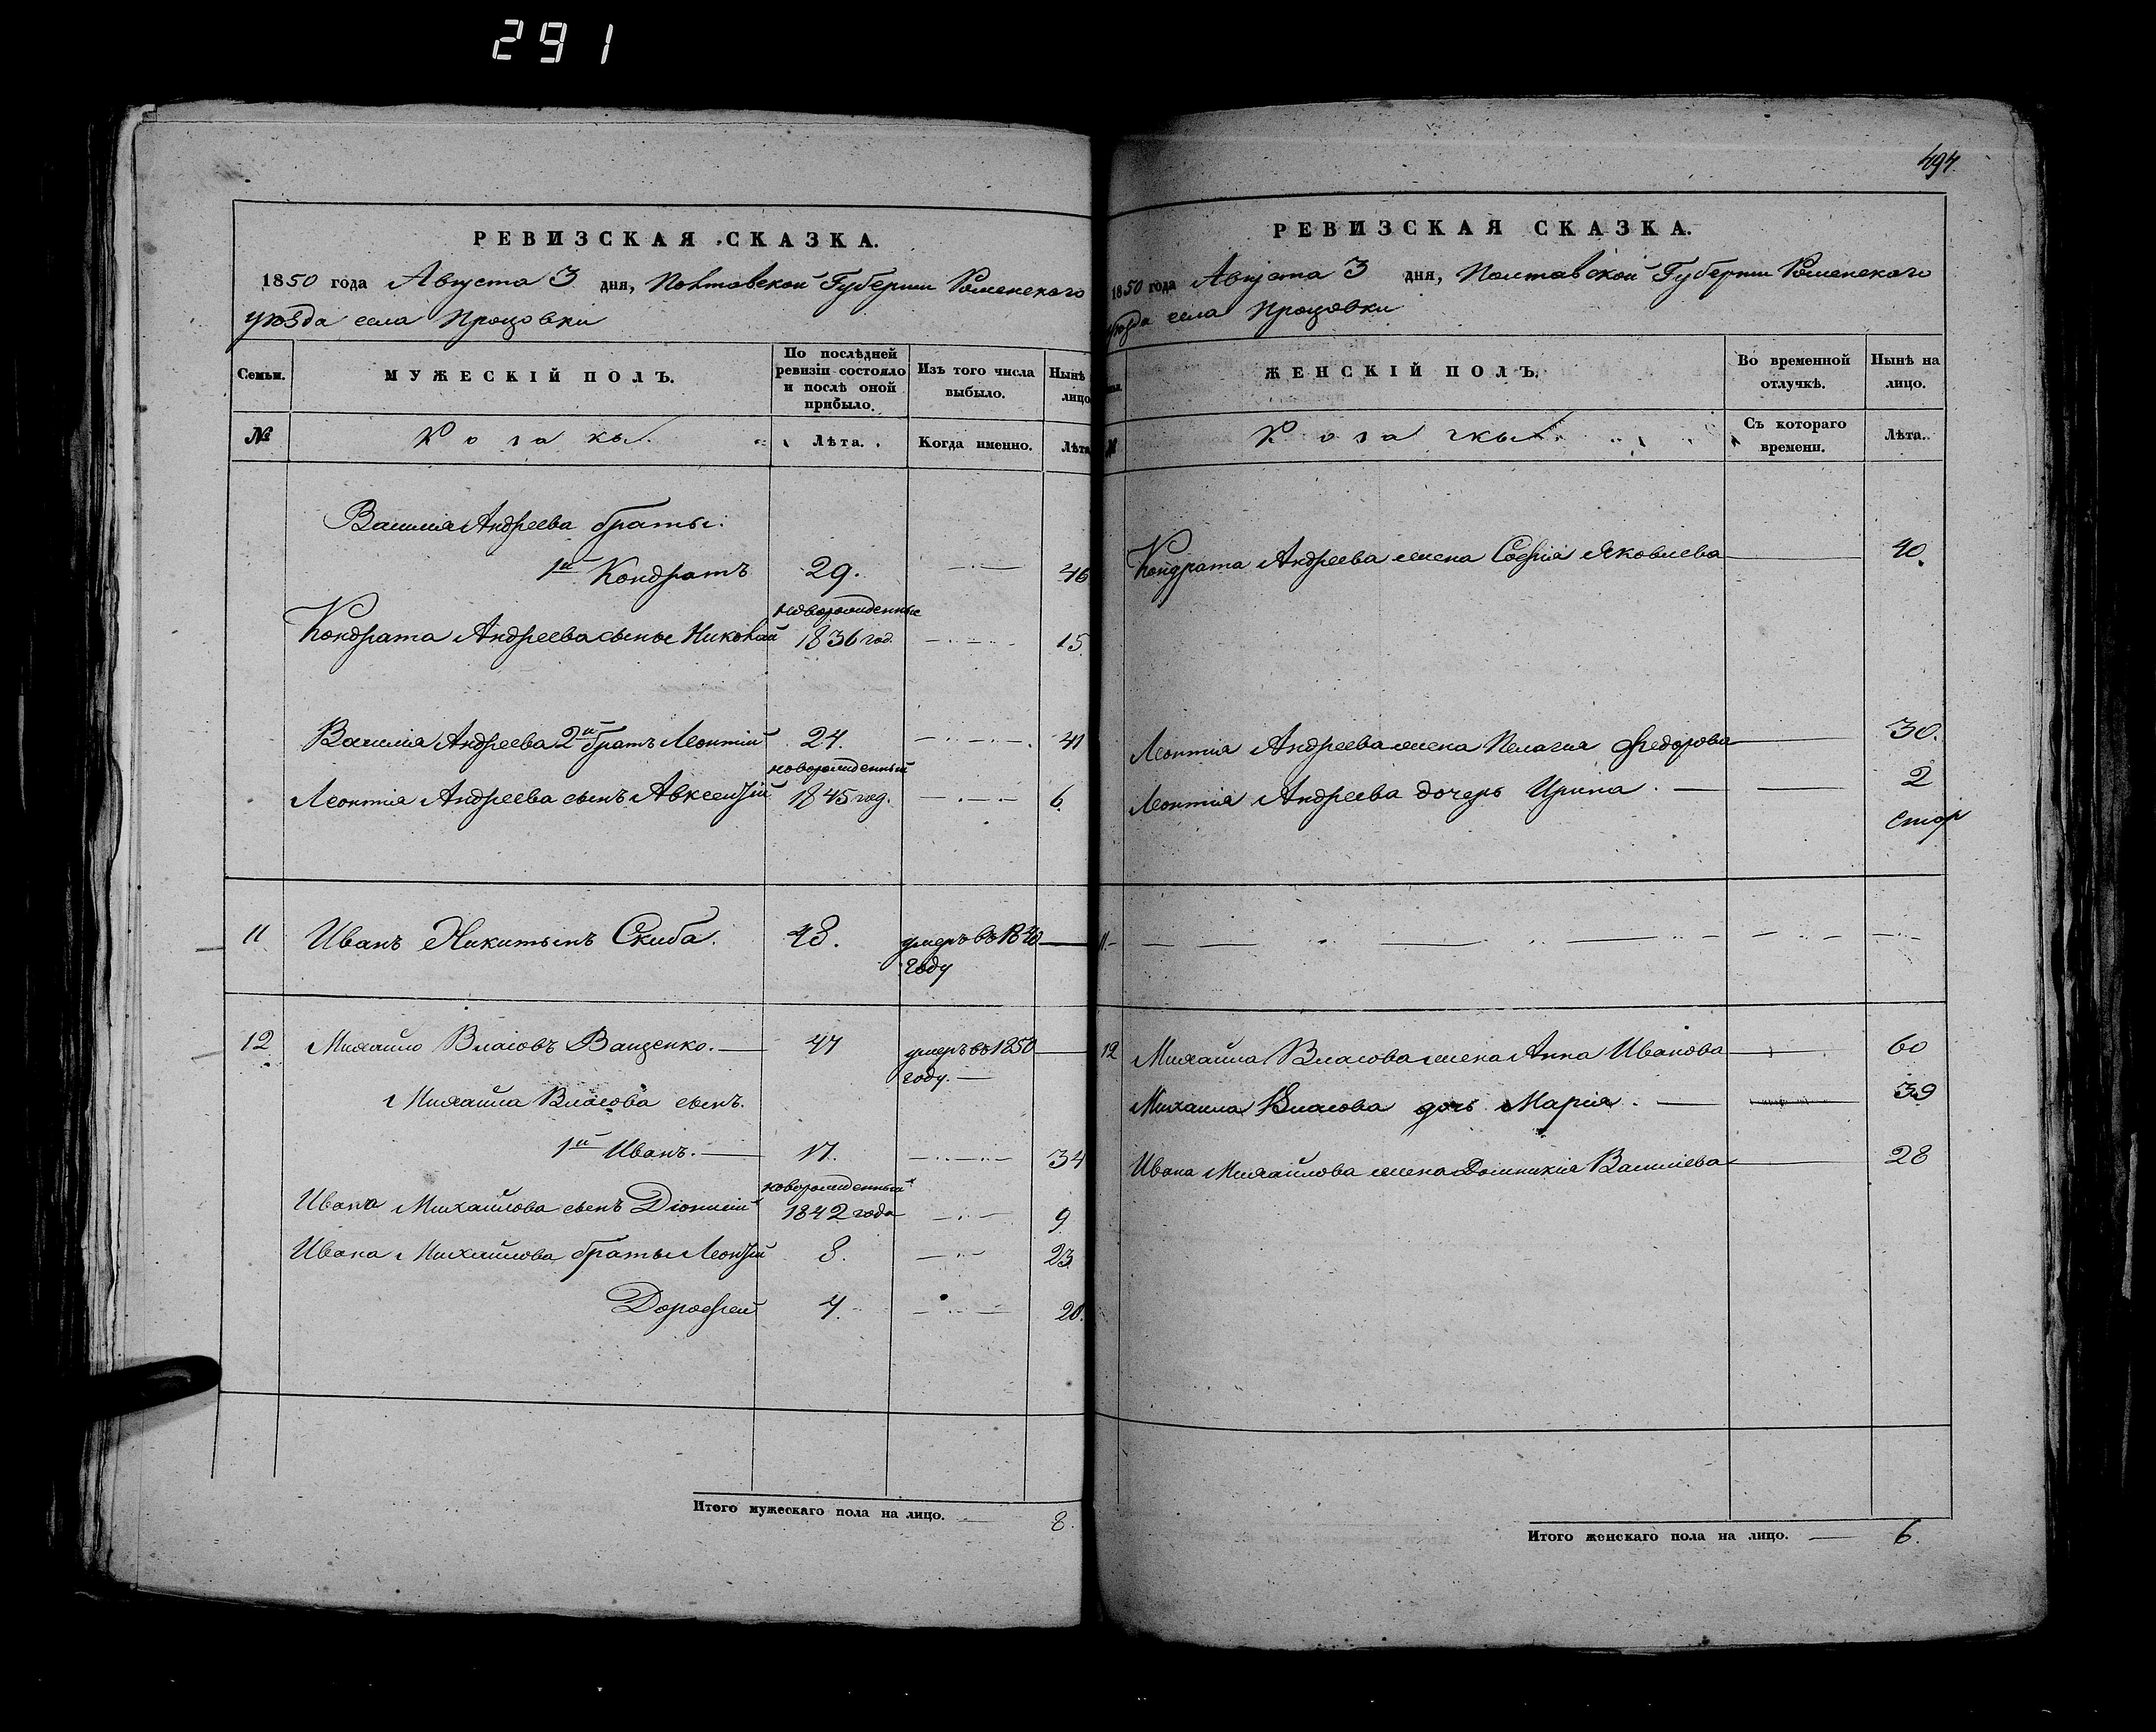 291
РЕВИЗСКАЯ СКАЗКА.
1850 года Августа 3 дня, Полтавской Губернии Роменского
уѣзда села Процовки
Семьи.
МУЖЕСКІЙ ПОЛЪ.
По послѣдней ревизіи состояло и послѣ оной прибыло.
Изъ того числа выбыло.
Нынѣ лицо
№
Козаки.
Лѣта.
Когда именно.
Лѣта
Василія Андреева браты:
1й Кондратъ 29. 46
новорожденные
Кондрата Андреева сыны Николай 1836 год. 15.
Василія Андреева 2й братъ Леонтій 24. 41
новорожденный
Леонтія Андреева сынъ Авксентій 1845 год. 6.
11 Иванъ Никитинъ Скиба. 48. умеръ въ 1840
году
12 Михайло Власовъ Ващенко. 47 умеръ въ 1850
году.
Михайла Власова сынъ.
1й Иванъ. 17. 34
новорожденный
Ивана Михайлова сынъ Діонисій 1842 года 9.
Ивана Михайлова браты Леонтій 8. 23.
Дорофей 4. 20.
Итого мужескаго пола на лицо. 8.
494
РЕВИЗСКАЯ СКАЗКА.
1850 года Августа 3 дня, Полтавской Губернии Роменского
уѣзда села Процовки
ЖЕНСКІЙ ПОЛЪ.
Во временной отлучкѣ.
Нынѣ на лицо.
№
Козачки
Съ котораго времени.
Лѣта.
Кондрата Андреева жена Софія Яковлева 40.
Леонтія Андреева жена Пелагия Федорова 30.
Леонтія Андреева дочерь Ирина. 2
11
12 Михайла Власова жена Анна Иванова 60
Михаила Власова дочь Марія. 39
Ивана Михайлова жена Домникія Василіева 28
Итого женскаго пола на лицо. 6.